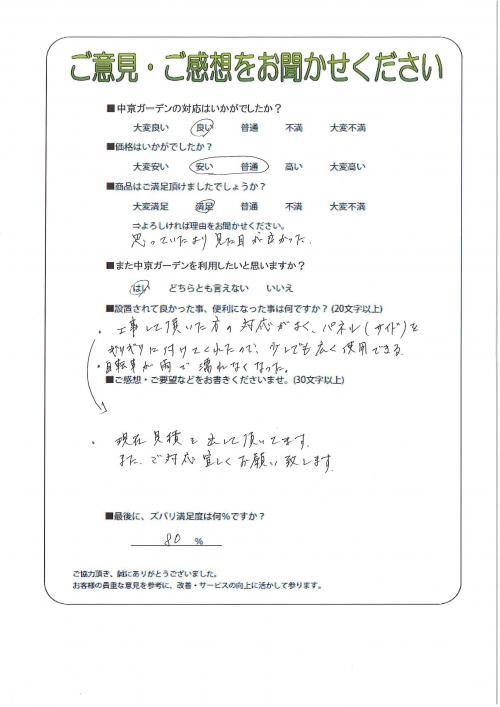 ご意見・ご感想をお聞かせください
■中京ガーデンの対応はいかがでしたか？
大変良い 良い 普通 不満 大変不満
■価格はいかがでしたか？
大変安い 安い 普通 高い 大変高い
■商品はご満足頂けましたでしょうか？
大変満足 満足 普通 不満 大変不満
⇒よろしければ理由をお聞かせください。
思っていたより見た目が良かった.
■また中京ガーデンを利用したいと思いますか？
はい どちらとも言えない いいえ
■設置されて良かった事、便利になった事は何ですか？(20文字以上)
・工事して頂いた方の対応がよく、パネル(サイド)を
ぎりぎりに付けてくれたので、少しでも広く使用できる.
・自転車が雨で濡れなくなった。
■ご感想・ご要望などをお書きくださいませ。(30文字以上)
・現在見積を出して頂いてます.
また、ご対応宜しくお願い致します.
■最後に、ズバリ満足度は何％ですか？
80 ％
ご協力頂き、誠にありがとうございました。
お客様の貴重な意見を参考に、改善・サービスの向上に活かして参ります。